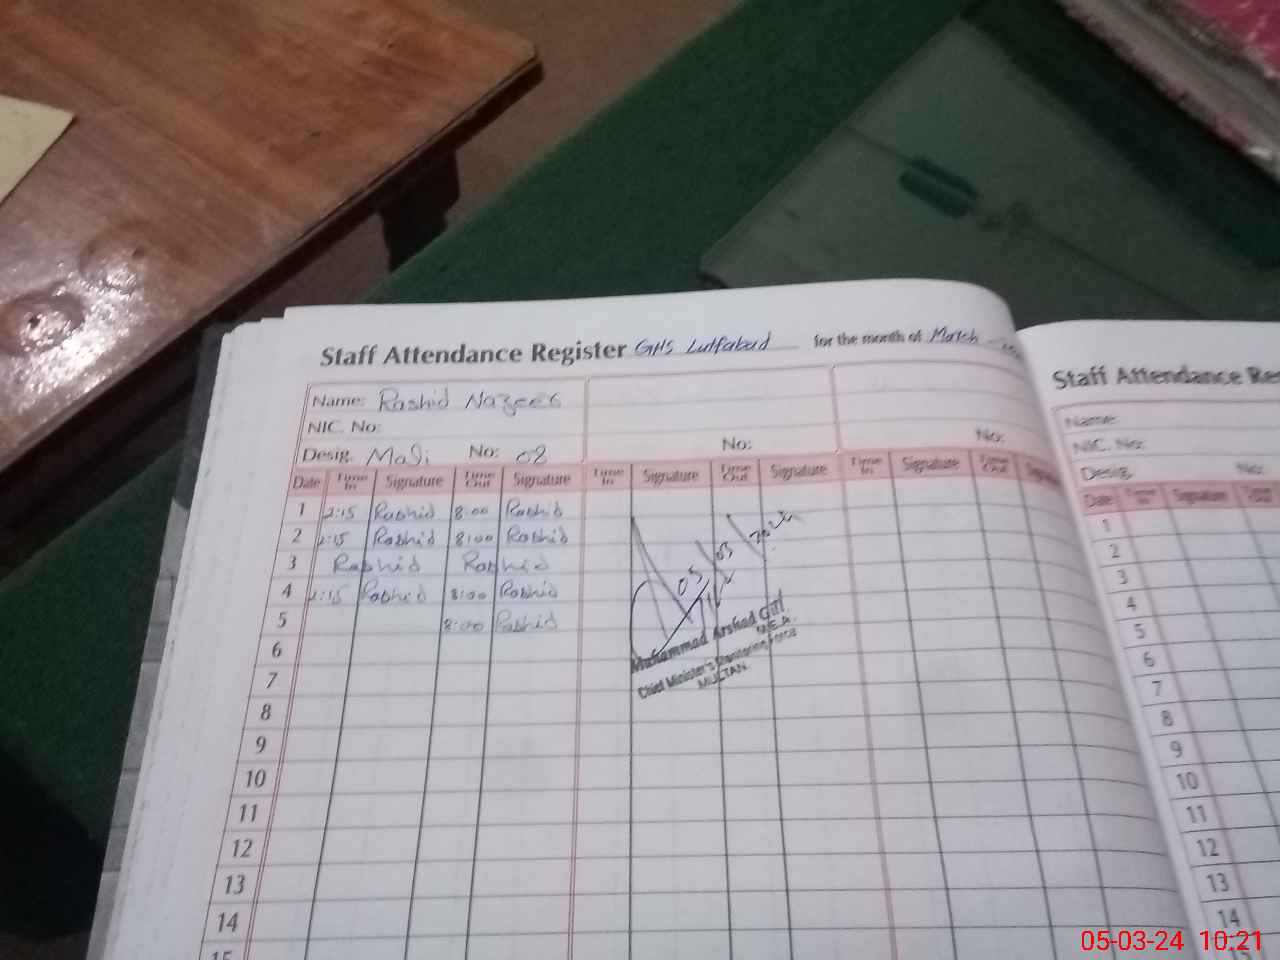 Staff Attendance Register GHS Lutfabad for the month of March
Name: Rashid Nazeer
NIC. No:
Desig. Mali No: 08
No:
No:
Date Time In Signature Time Out Signature Time In Signature Time Out Signature Time In Signature Time Out Signature
1 2:15 Rashid 8:00 Rashid
2 2:15 Rashid 8:00 Rashid
3 Rashid Rashid
4 2:15 Rashid 8:00 Rashid
5 8:00 Rashid
6
7
8
9
10
11
12
13
14
15
05/03/2024
Muhammad Arshad Gill
M.E.A.
Chief Minister's Monitoring Force
MULTAN
Staff Attendance Re
Name:
NIC. No:
Desig. No:
Date Time In Signature Time Out
1
2
3
4
5
6
7
8
9
10
11
12
13
14
05-03-24 10:21